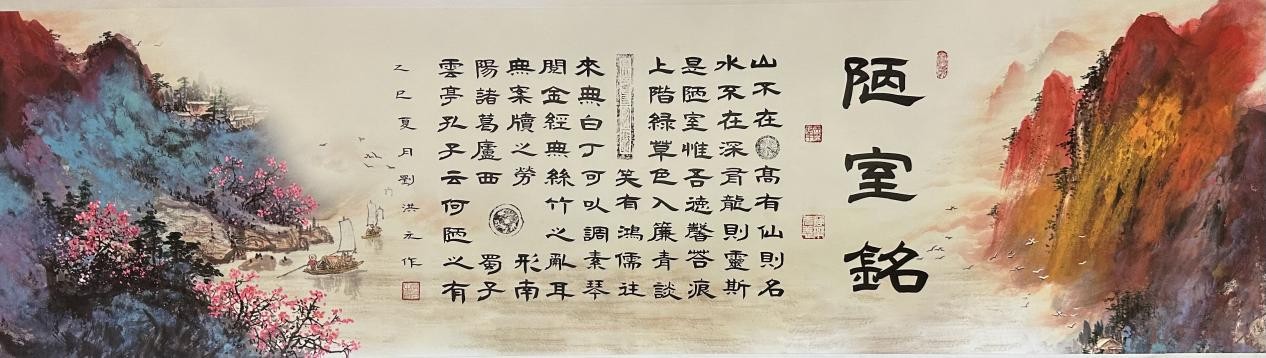 陋室銘
山不在高有仙則名
水不在深有龍則靈斯
是陋室惟吾德馨苔痕
上階綠草色入簾青談
笑有鴻儒往
來無白丁可以調素琴
閱金經無絲竹之亂耳
無案牘之勞形南
陽諸葛廬西蜀子
雲亭孔子云何陋之有
乙巳夏月劉洪元作